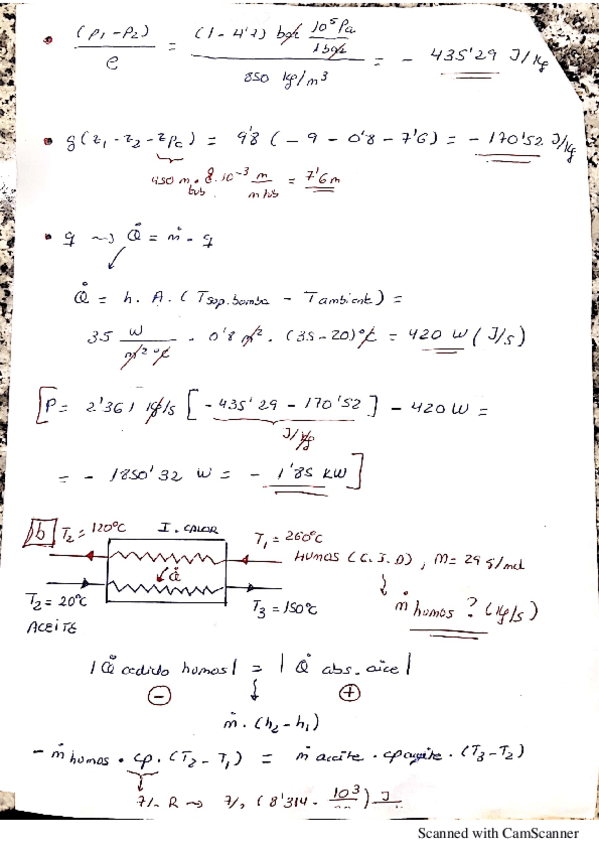 • (p1-p2) / e = (1-4'7) bar 10^5 Pa / 1 bar / 850 kg/m³ = - 435'29 J/kg
• g(z1-z2-zpc) = 9'8 (-9-0'8-7'6) = -170'52 J/kg
950 m tub · 8·10^-3 m / m tub = 7'6 m
• q ⇝ Q̇ = ṁ · q
Q̇ = h. A. (Tsup.bomba - Tambiente) =
35 W / m² ºC · 0'8 m². (35-20)ºC = 420 W (J/s)
[P = 2'361 kg/s [-435'29 - 170'52] - 420 W =
J/kg
= - 1850'32 W = - 1'85 KW]
b T2 = 120ºC I. CALOR T1 = 260ºC
HUMOS (C.I.D), M = 29 g/mol
Q̇
T2 = 20ºC T3 = 150ºC ṁ humos? (kg/s)
ACEITE
|Q̇ cedido humos| = |Q̇ abs. aice|
- +
ṁ. (h2-h1)
- ṁ humos · cp. (T2-T1) = ṁ aceite · cp aceite · (T3-T2)
7/2 R ⇝ 7/2 (8'314 · 10³ J
Scanned with CamScanner